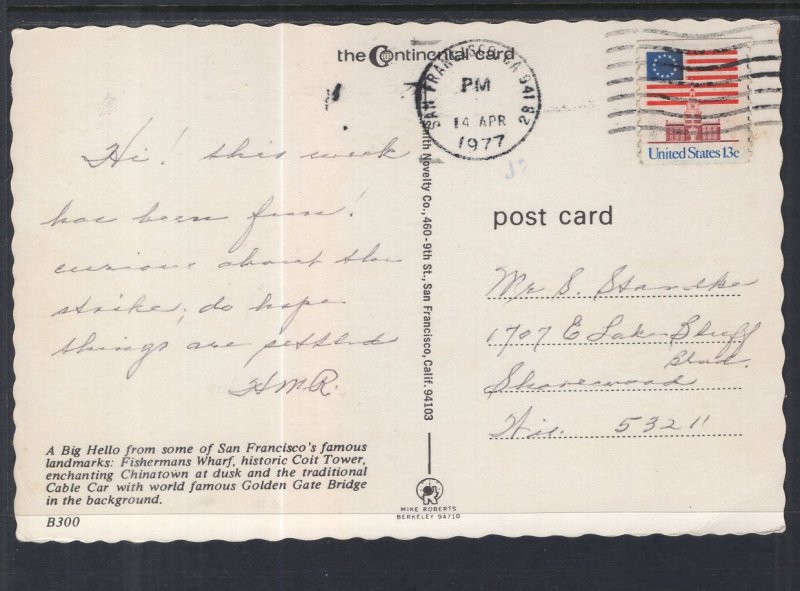 the Continental card
SAN FRANCISCO, CA 941
PM
14 APR
1977
2B
United States 13c
Hi! this week
has been fun!
curious about the
strike; do hope
things are settled
H.M.R.
Smith Novelty Co., 460-9th St., San Francisco, Calif. 94103
post card
Mr S. Standke
1707 E Lake Bluff
Blvd.
Shorewood
Wis. 53211
A Big Hello from some of San Francisco's famous
landmarks: Fishermans Wharf, historic Coit Tower,
enchanting Chinatown at dusk and the traditional
Cable Car with world famous Golden Gate Bridge
in the background.
B300
MIKE ROBERTS
BERKELEY 94710